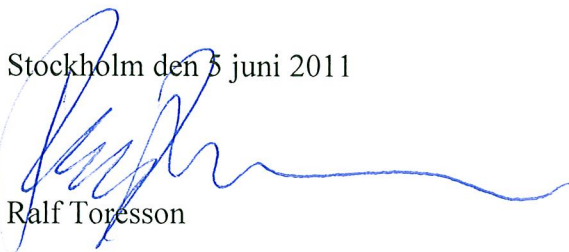 Stockholm den 5 juni 2011
Ralf Toresson